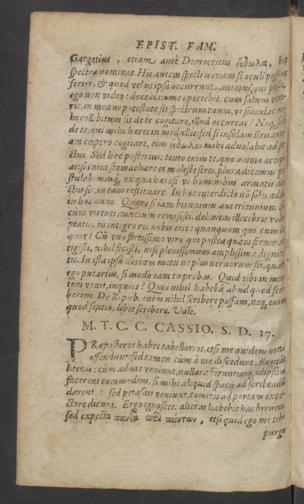 EPIST. FAM.
Gargetius, etiam ante Democritus εἴδωλα, hic
spectra nominat. His autem spectris etiam si oculi possent
feriri, quod velis ipsa occurrunt, animus qui possit,
ego non video: doceas tu me oportebit, cum salvus vene-
ris, in mea ne potestate sit spectrum tuum, ut simulac mi
hi collibitum sit de te cogitare, illud occurrat: Neque
de te, qui mihi haeres in medullis: sed si insulam Britanni-
am coepero cogitare, eius εἴδωλον mihi advolabit ad pe-
ctus. Sed hoc posterius: tento enim te, quo animo accipias.
at si enim stomachabere et moleste feres, plura dicemus
stulabimusque, ex qua haeresi vi hominibus armatis de-
iectus sis, in eam restituare. In hoc interdicto non solet addi
in hoc anno. Quare si iam biennium aut triennium
cum virtuti nuncium remisisti, delinitus illecebris volu-
ptatis, in integro res nobis erit: quanquam qui cum lo-
quor? Cum uno fortissimo viro qui postea quam forum at-
tigisti, nihil fecisti, nisi plenissimum amplissimae dignita-
tis. In ista ipsa metuo ne plus nervorum sit, quam
ego putarim, si modo eam tu probas. Quid tibi in men-
tem venit, inquies? Quia nihil habebam aliud quod scri-
berem. De Repub. enim nihil scribere possum, neque enim
quod sentio, libet scribere. Vale.
M. T. C. C. CASSIO. S. D. 17.
PRaeposteros habes tabellarios, etsi me quidem non
offendunt: sed tamen cum a me discedunt, flagitant
literas: cum ad me veniunt, nullas afferunt: atque id ipsum
facerent commodius, si mihi aliquid spacii ad scribendum
darent: sed petasati veniunt, comites ad portam expe-
ctare dicunt. Ergo ignosces: alteras habebis has breves:
sed expecta πάντα περὶ πάντων, etsi quid ego me tibi
purgo